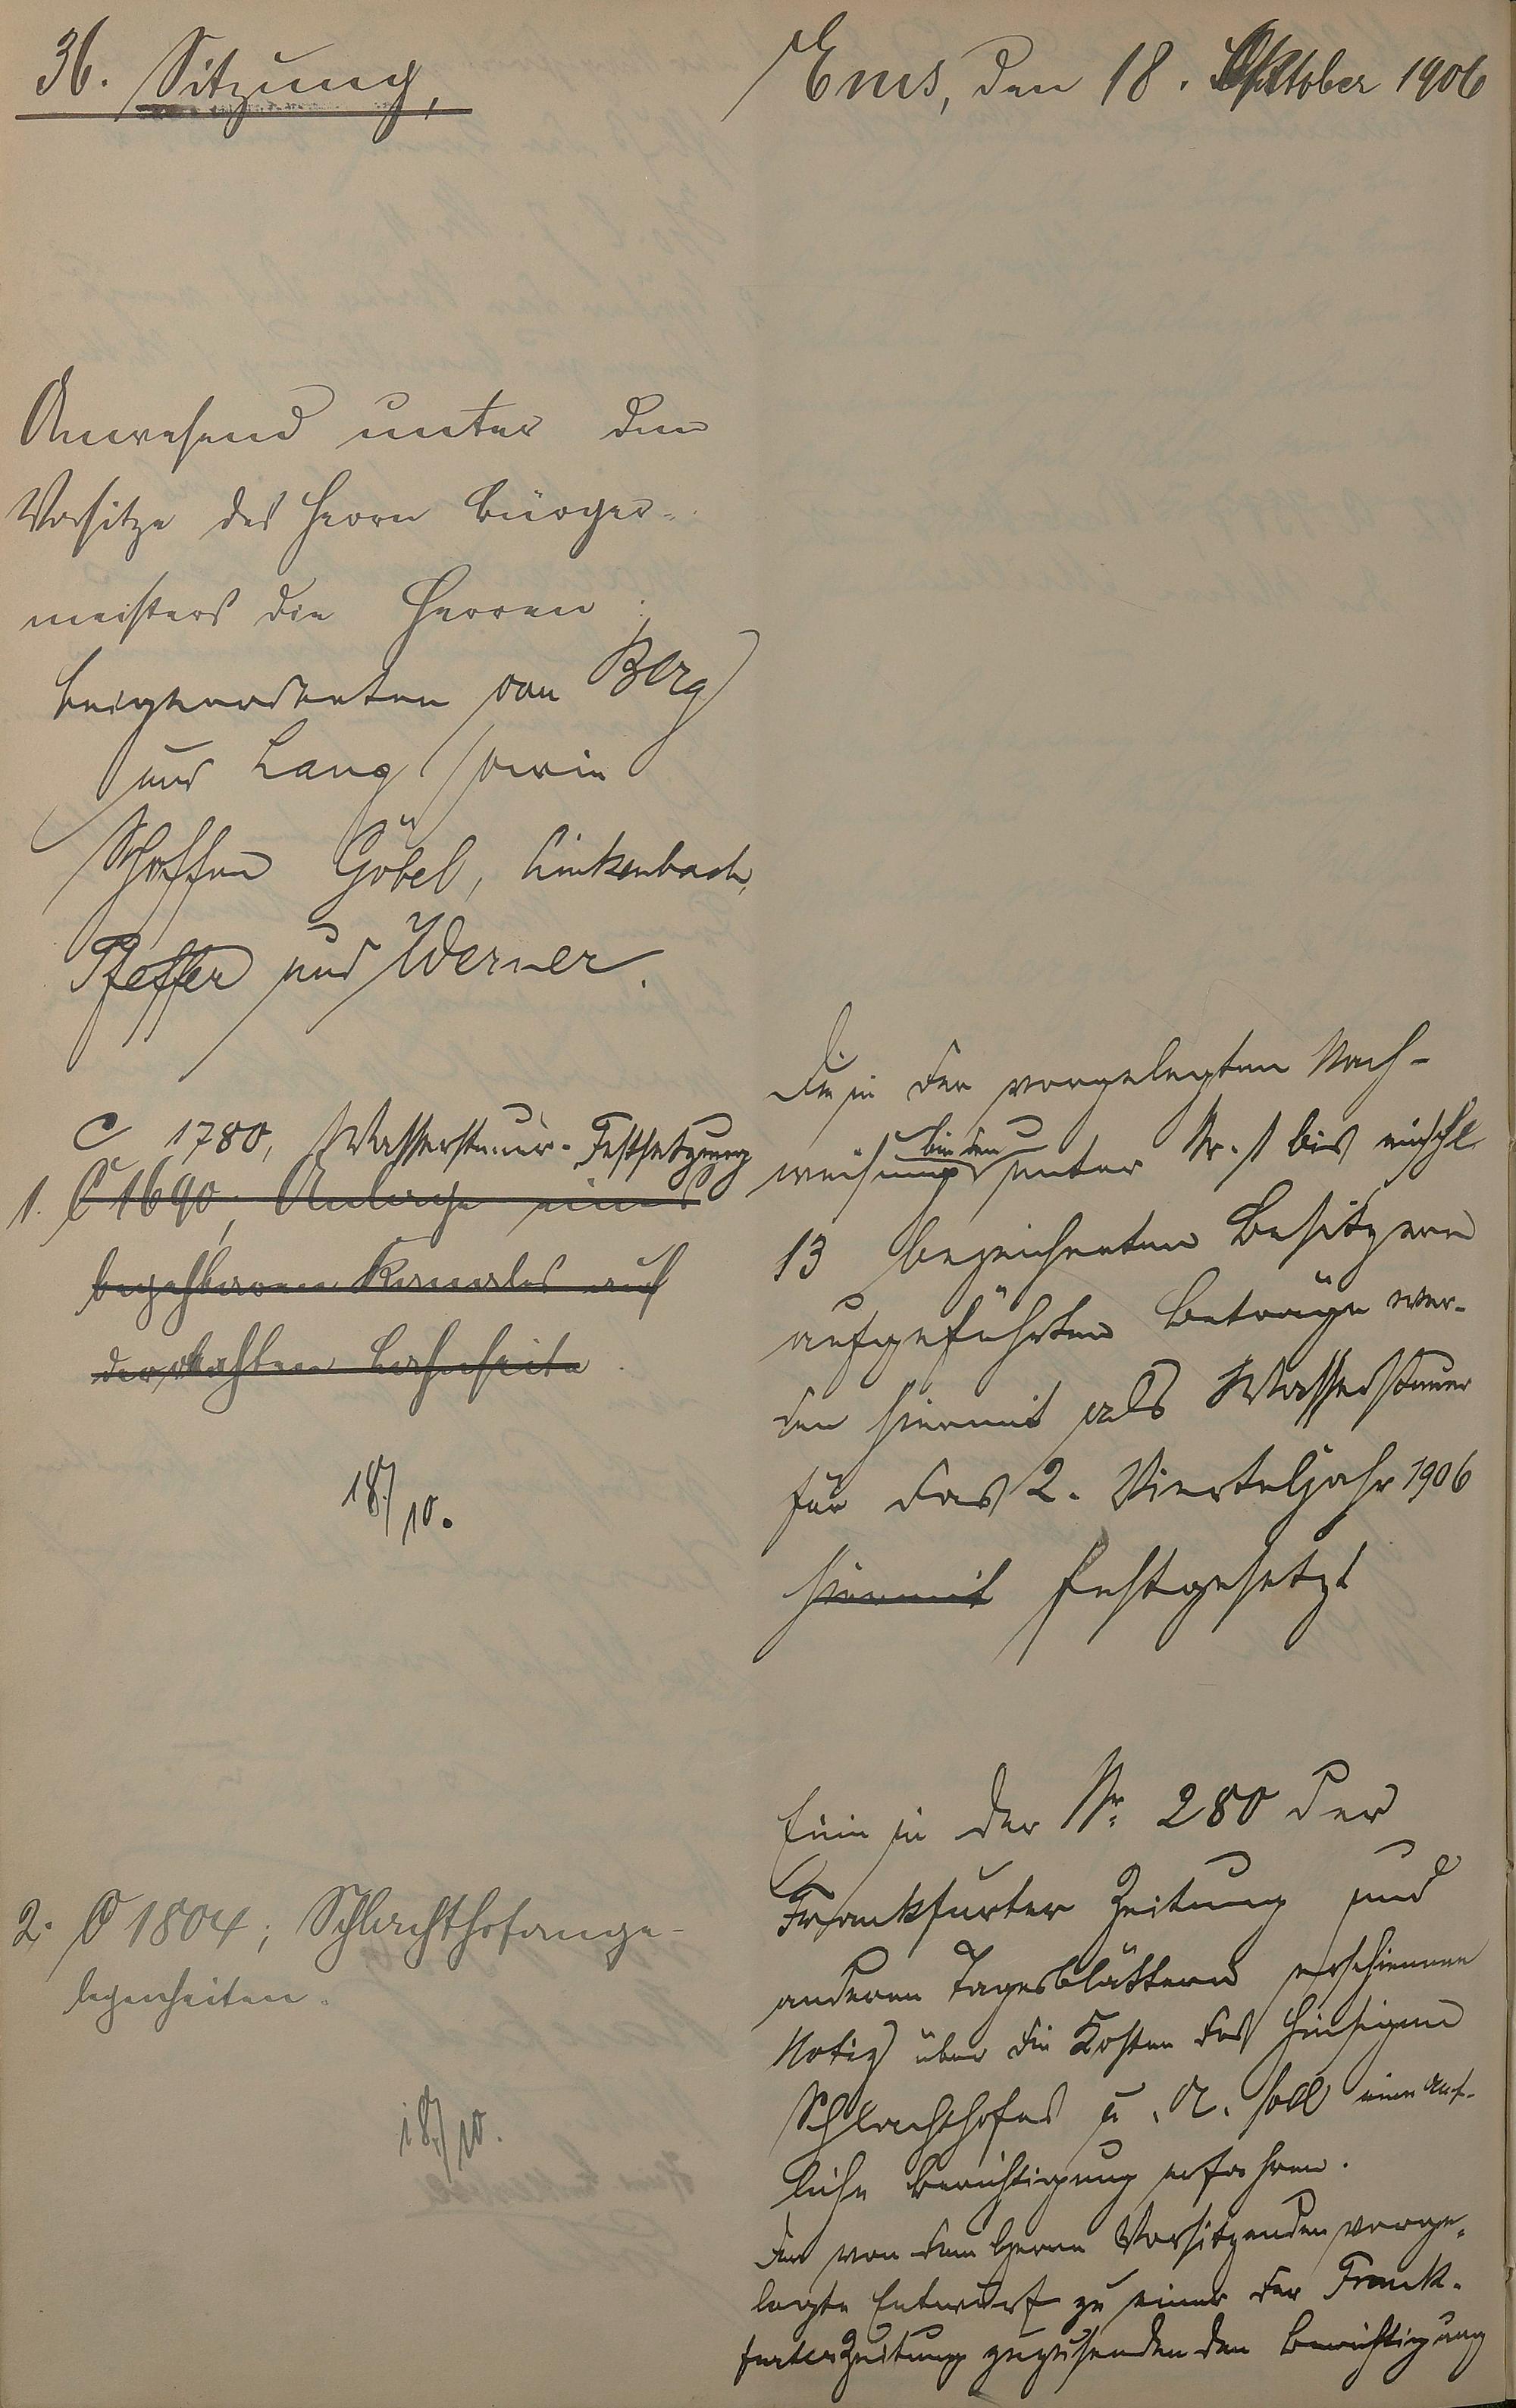 36. Sitzung,
Ems, den 18. Oktober 1906
Anwesend unter dem
Vorsitze des Herrn Bürger-
meisters die Herren:
Beigeordneten von Berg
und Lang sowie
Schöffen Göbel, Linkenbach,
Pfeffer und Werner.
C 1780, Wassersteuer-Festsetzung
1. C 1690; Anlage eines
begehbaren Kanales auf
der rechten Lahnseite.
18./10.
Die in der vorgelegten Nach-
weisung bei den unter Nr. 1 bis einschl.
13 bezeichneten Besitzern
aufgeführten Beträge wer-
den hiermit als Wassersteuer
für das 2. Vierteljahr 1906
hiermit festgesetzt
2. C 1804; Schlachthofange-
legenheiten.
18./10.
Eine in der Nr. 280 der
Frankfurter Zeitung und
anderen Tagesblättern erschienene
Notiz über die Kosten des hiesigen
Schlachthofes u. A. soll eine
liche Berichtigung erfahren.
Der von dem Herrn Vorsitzenden vorge-
legte Entwurf zu einer der Frank-
furter Zeitung zuzusendenden Berichtigung